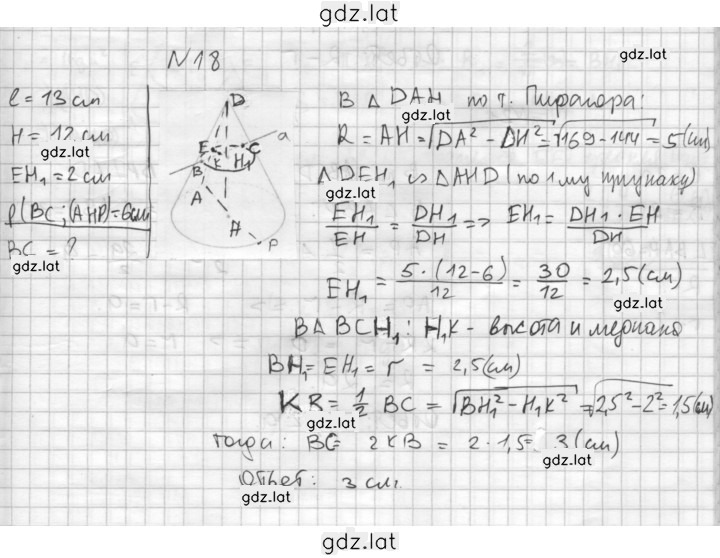 gdz.lat
N18
gdz.lat
l = 13 см
H = 12 см
gdz.lat
EH₁ = 2 см
ρ(BC; (AHP)) = 6 см
BC = ?
gdz.lat
D
E
C
a
K
H₁
B
A
H
P
В △ DAH по т. Пифагора:
R = AH = √(DA² - DH²) = √(169 - 144) = 5 (см)
△ DEH₁ ∽ △ AHD (по 1му признаку)
EH₁/EH = DH₁/DH => EH₁ = DH₁ · EH/DH
gdz.lat
EH₁ = 5 · (12 - 6)/12 = 30/12 = 2,5 (см)
gdz.lat
В △ BCH₁: H₁K - высота и медиана
BH₁ = EH₁ = r = 2,5 (см)
gdz.lat
KB = 1/2 BC = √(BH₁² - H₁K²) = √(2,5² - 2²) = 1,5 (см)
gdz.lat
тогда: BC = 2KB = 2 · 1,5 = 3 (см)
gdz.lat
Ответ: 3 см.
gdz.lat
gdz.lat